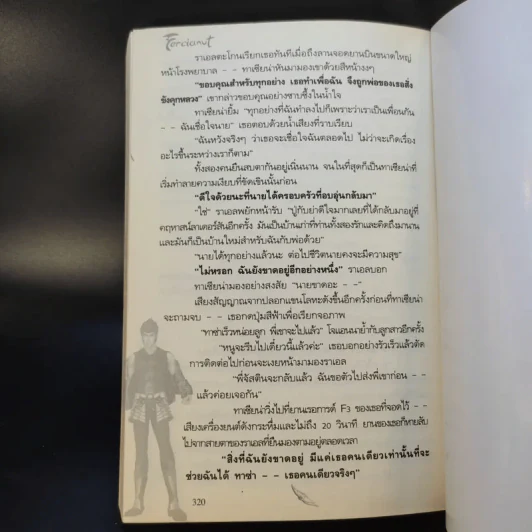 Fercianut
ราเอลตะโกนเรียกเธอทันทีเมื่อถึงลานจอดยานบินขนาดใหญ่
หน้าโรงพยาบาล - - ทาเซียน่าหันมามองเขาด้วยสีหน้างงๆ
"ขอบคุณสำหรับทุกอย่าง เธอทำเพื่อฉัน จึงถูกพ่อของเธอสั่ง
ขังคุกหลวง" เขากล่าวขอบคุณอย่างซาบซึ้งในน้ำใจ
ทาเซียน่ายิ้ม "ทุกอย่างที่ฉันทำลงไปก็เพราะว่าเราเป็นเพื่อนกัน
- - ฉันเชื่อใจนาย" เธอตอบด้วยน้ำเสียงที่ราบเรียบ
"ฉันหวังจริงๆ ว่าเธอจะเชื่อใจฉันตลอดไป ไม่ว่าจะเกิดเรื่อง
อะไรขึ้นระหว่างเราก็ตาม"
ทั้งสองคนยืนสบตากันอยู่เนิ่นนาน จนในที่สุดก็เป็นทาเซียน่าที่
เริ่มทำลายความเงียบที่ขัดเขินนั้นก่อน
"ดีใจด้วยนะที่นายได้ครอบครัวที่อบอุ่นกลับมา"
"ใช่" ราเอลพยักหน้ารับ "ปู่กับย่าดีใจมากเลยที่ได้กลับมาอยู่ที่
คฤหาสน์ลาเตอร์สันอีกครั้ง มันเป็นบ้านเก่าที่ท่านทั้งสองรักและคิดถึงมานาน
และมันก็เป็นบ้านใหม่สำหรับฉันกับพ่อด้วย"
"นายได้ทุกอย่างแล้วนะ ต่อไปชีวิตนายคงจะมีความสุข"
"ไม่หรอก ฉันยังขาดอยู่อีกอย่างหนึ่ง" ราเอลบอก
ทาเซียน่ามองอย่างสงสัย "นายขาดอะ - -"
เสียงสัญญาณจากปลอกแขนโลหะดังขึ้นอีกครั้งก่อนที่ทาเซียน่า
จะถามจบ - - เธอกดปุ่มสีฟ้าเพื่อเรียกจอภาพ
"ทาซ่าเร็วหน่อยลูก พี่เขาจะไปแล้ว" โจแอนนาย้ำกับลูกสาวอีกครั้ง
"หนูจะรีบไปเดี๋ยวนี้แล้วค่ะ" เธอบอกอย่างรวดเร็วแล้วตัด
การติดต่อไปก่อนจะเงยหน้ามามองราเอล
"พี่จัสตินจะกลับแล้ว ฉันขอตัวไปส่งพี่เขาก่อน - -
แล้วค่อยเจอกัน"
ทาเซียน่าวิ่งไปที่ยานเรอการ์ต์ F3 ของเธอที่จอดไว้ - -
เสียงเครื่องยนต์ดังกระหึ่มและไม่ถึง 20 วินาที ยานของเธอก็หายลับ
ไปจากสายตาของราเอลที่ยืนมองตามอยู่ตลอดเวลา
"สิ่งที่ฉันยังขาดอยู่ มีแค่เธอคนเดียวเท่านั้นที่จะ
ช่วยฉันได้ ทาซ่า - - เธอคนเดียวจริงๆ"
320